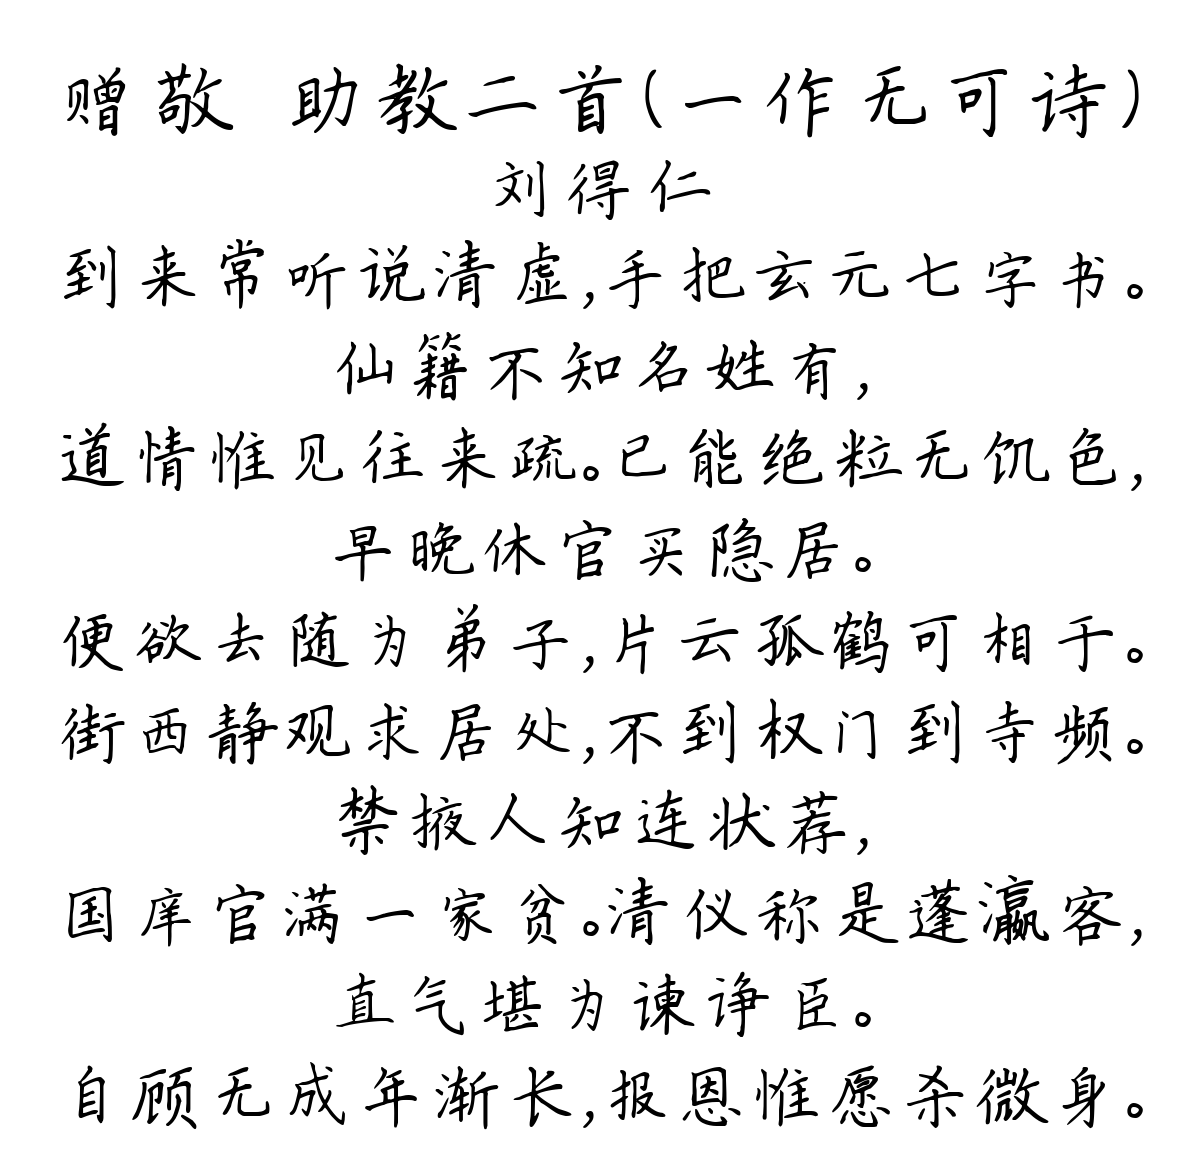 赠敬 助教二首(一作无可诗)
刘得仁
到来常听说清虚,手把玄元七字书。
仙籍不知名姓有,
道情惟见往来疏。已能绝粒无饥色,
早晚休官买隐居。
便欲去随为弟子,片云孤鹤可相于。
街西静观求居处,不到权门到寺频。
禁掖人知连状荐,
国庠官满一家贫。清仪称是蓬瀛客,
直气堪为谏诤臣。
自顾无成年渐长,报恩惟愿杀微身。